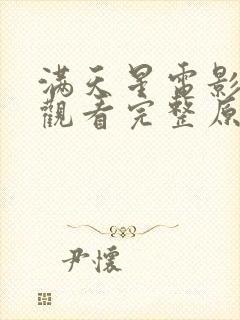 满天星電影
觀看完整原
尹懷